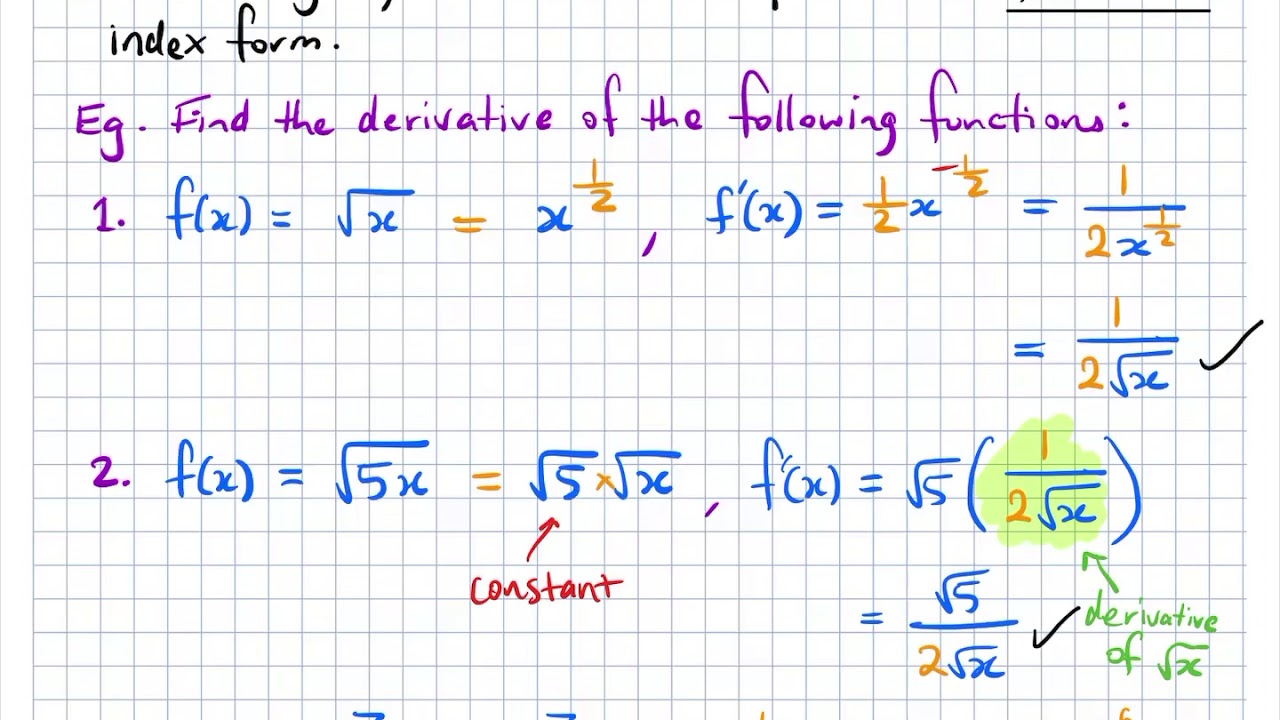 index form.
Eg. Find the derivative of the following functions:
1. f(x) = √x = x^(1/2) , f'(x) = 1/2 x^(-1/2) = 1/(2x^(1/2))
= 1/(2√x) ✓
2. f(x) = √5x = √5 × √x , f'(x) = √5 (1/(2√x))
constant
= √5/(2√x) ✓
derivative
of √x